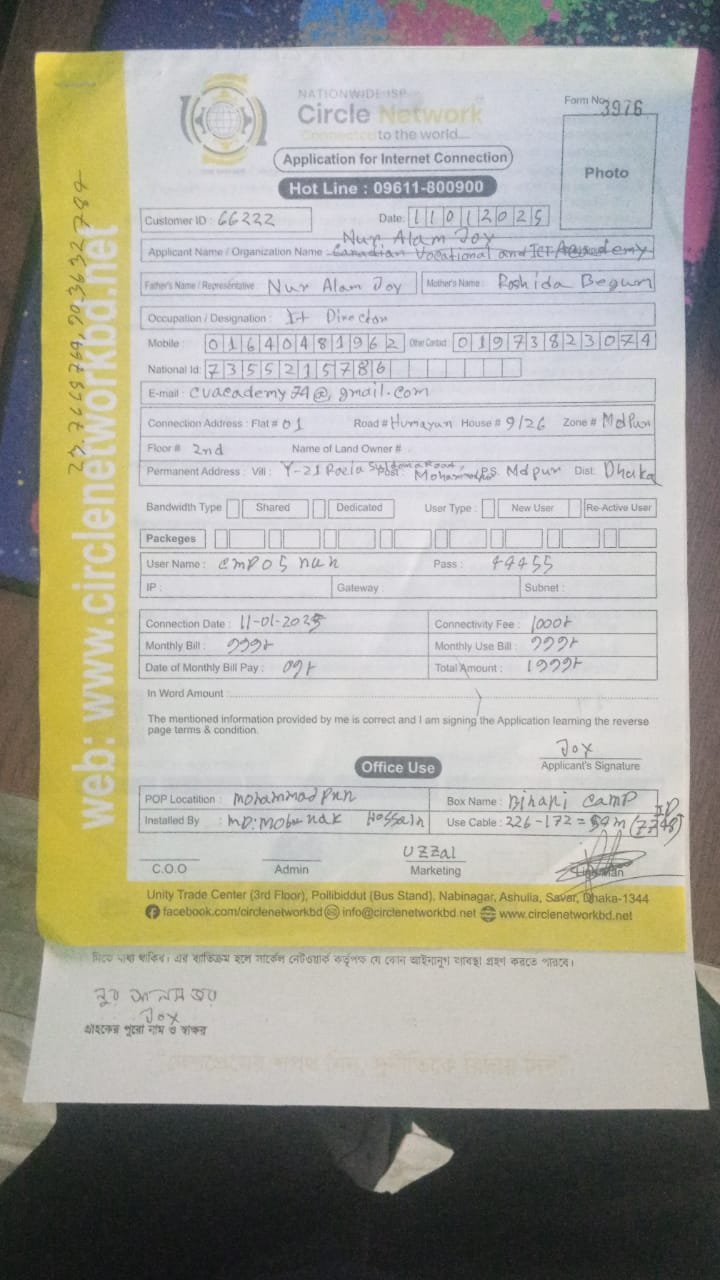 NATIONWIDE ISP
Circle Network
Connected to the world....
Form No. 3976
Photo
Application for Internet Connection
Hot Line : 09611-800900
Customer ID : 66222 Date: 11012025
Nur Alam Joy
Applicant Name / Organization Name : Canadian Vocational and ICT Academy
Father's Name / Representative : Nur Alam Joy Mother's Name : Roshida Begum
Occupation / Designation : It Director
Mobile : 01640481962 Other Contact : 01973823074
National Id: 7355215786
E-mail : cvacademy74@gmail.com
Connection Address : Flat # 01 Road # Humayun House # 9/26 Zone # Mdpur
Floor # 2nd Name of Land Owner #
Permanent Address : Vill : Y-21 Post: Mohammadpur P.S. Mdpur Dist: Dhaka
Bandwidth Type Shared Dedicated User Type : New User Re-Active User
Packeges
User Name : Pass : 44455
IP : Gateway : Subnet :
Connection Date : 11-01-2025 Connectivity Fee : 1000৳
Monthly Bill : 999৳ Monthly Use Bill : 999৳
Date of Monthly Bill Pay : Total Amount : 1999৳
In Word Amount :
The mentioned information provided by me is correct and I am signing the Application learning the reverse
page terms & condition.
Joy
Applicant's Signature
Office Use
POP Locatition : Mohammadpur Box Name : Bihari camp
Installed By : MD: Mobarak Hossain Use Cable : 226-172 = 54m
UZZal
C.O.O Admin Marketing
Unity Trade Center (3rd Floor), Pollibiddut (Bus Stand), Nabinagar, Ashulia, Savar, Dhaka-1344
facebook.com/circlenetworkbd info@circlenetworkbd.net www.circlenetworkbd.net
web: www.circlenetworkbd.net
দিতে বাধ্য থাকিব। এর ব্যতিক্রম হলে সার্কেল নেটওয়ার্ক কর্তৃপক্ষ যে কোন আইনানুগ ব্যবস্থা গ্রহণ করতে পারবে।
নুর আলম জয়
Joy
গ্রাহকের পুরো নাম ও স্বাক্ষর